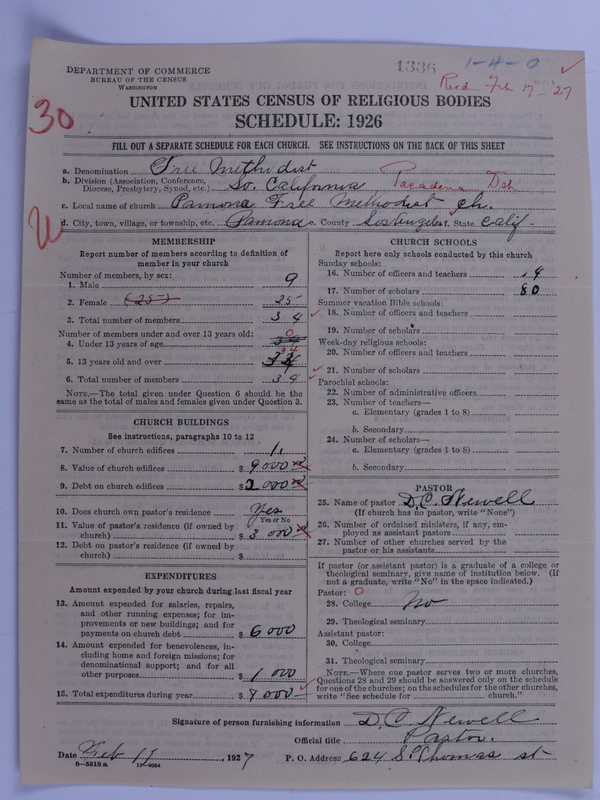 1336 1-4-0
DEPARTMENT OF COMMERCE
BUREAU OF THE CENSUS
WASHINGTON
Recd Feb 17-'27
30
UNITED STATES CENSUS OF RELIGIOUS BODIES
SCHEDULE: 1926
FILL OUT A SEPARATE SCHEDULE FOR EACH CHURCH. SEE INSTRUCTIONS ON THE BACK OF THIS SHEET
a. Denomination Free Methodist
b. Division (Association, Conference, Diocese, Presbytery, Synod, etc.) So. California, Pasadena Dst.
c. Local name of church Pamona Free Methodist ch.
d. City, town, village, or township, etc. Pamona e. County Los Angeles f. State Calif.
MEMBERSHIP
Report number of members according to definition of
member in your church
Number of members, by sex:
1. Male 9
2. Female (25) 25
3. Total number of members 34
Number of members under and over 13 years old:
4. Under 13 years of age 0
5. 13 years old and over 34
6. Total number of members 34
NOTE.—The total given under Question 6 should be
same as the total of males and females given under Question 3.
CHURCH BUILDINGS
See instructions, paragraphs 10 to 12
7. Number of church edifices 1
8. Value of church edifices $9000
9. Debt on church edifices $2000
10. Does church own pastor's residence Yes
Yes or No
11. Value of pastor's residence (if owned by
church) $3000
12. Debt on pastor's residence (if owned by
church) $
EXPENDITURES
Amount expended by your church during last fiscal year
13. Amount expended for salaries, repairs,
and other running expenses; for im-
provements or new buildings; and for
payments on church debt $6000
14. Amount expended for benevolences, in-
cluding home and foreign missions; for
denominational support; and for all
other purposes $1000
15. Total expenditures during year $7000
CHURCH SCHOOLS
Report here only schools conducted by this church
Sunday schools:
16. Number of officers and teachers 14
17. Number of scholars 80
Summer vacation Bible schools:
18. Number of officers and teachers
19. Number of scholars
Week-day religious schools:
20. Number of officers and teachers
21. Number of scholars
Parochial schools:
22. Number of administrative officers
23. Number of teachers—
a. Elementary (grades 1 to 8)
b. Secondary
24. Number of scholars—
a. Elementary (grades 1 to 8)
b. Secondary
PASTOR
25. Name of pastor D.C. Newell
(If church has no pastor, write "None")
26. Number of ordained ministers, if any, em-
ployed as assistant pastors
27. Number of other churches served by the
pastor or his assistants
If pastor (or assistant pastor) is a graduate of a college or
theological seminary, give name of institution below. (If
not a graduate, write "No" in the space indicated.)
Pastor: 0
28. College No
29. Theological seminary
Assistant pastor:
30. College
31. Theological seminary
NOTE.—Where one pastor serves two or more churches,
Questions 28 and 29 should be answered only on the schedule
for one of the churches; on the schedules for the other churches,
write "See schedule for church."
Signature of person furnishing information D. C. Newell
Official title Pastor.
Date Feb 11, 1927 P. O. Address 624 S. Thomas st
8-5518a 11-9054